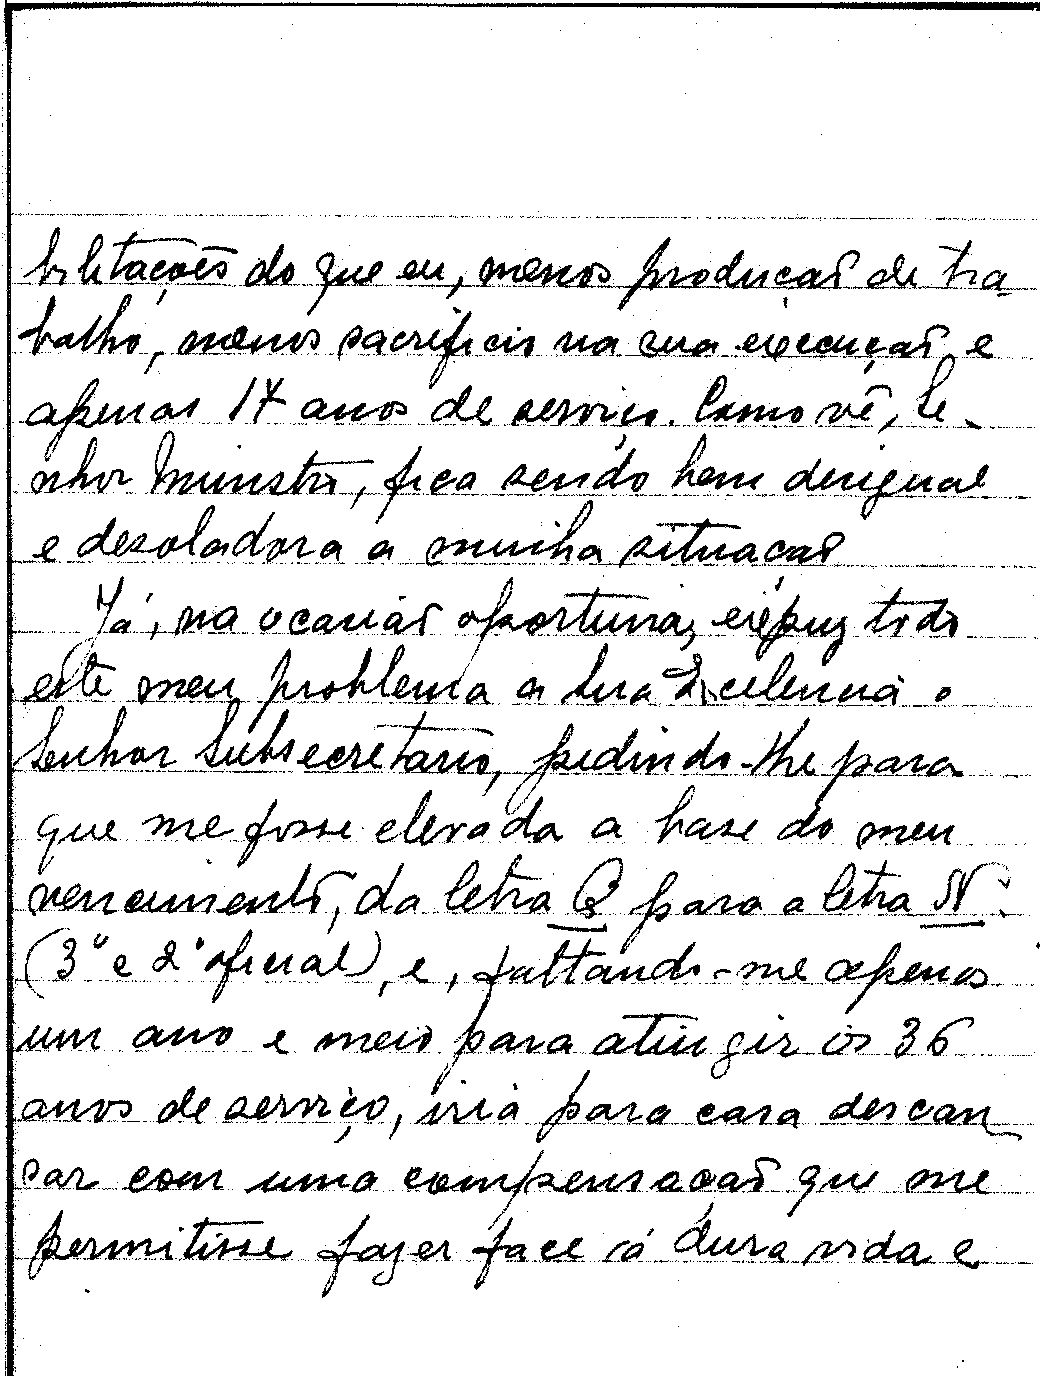 bilitações do que eu, menos producaõ de tra-
balho, menos sacrificio na sua execuçaõ, e
apenas 17 anos de serviço. Como vê, Se-
nhor Ministro, fica sendo bem desigual
e desoladora a minha situaçaõ
Já, na ocasiaõ oportuna, expuz todo
este meu problema a Sua Excelencia o
Senhor Subsecretario, pedindo-lhe para
que me fosse elevada a base do meu
vencimento, da letra Q para a letra N.
(3º e 2º oficial), e, faltando-me apenas
um ano e meio para atingir os 36
anos de serviço, iria para casa descan-
sar com uma compensaçaõ que me
permitisse fazer face á dura vida e